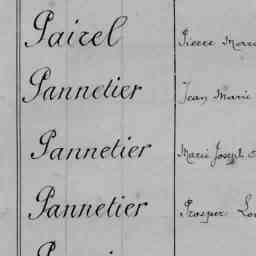 Pairel Pierre Marie
Pannetier Jean Marie
Pannetier Marie Joseph
Pannetier Prosper